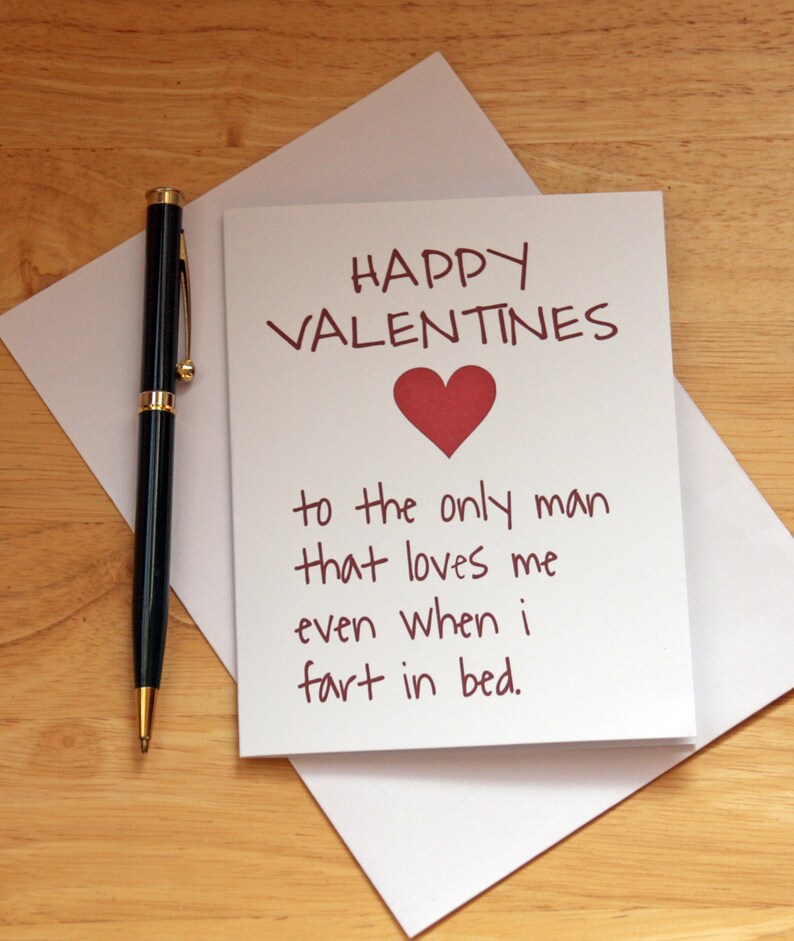 HAPPY
VALENTINES
to the only man
that loves me
even when i
fart in bed.